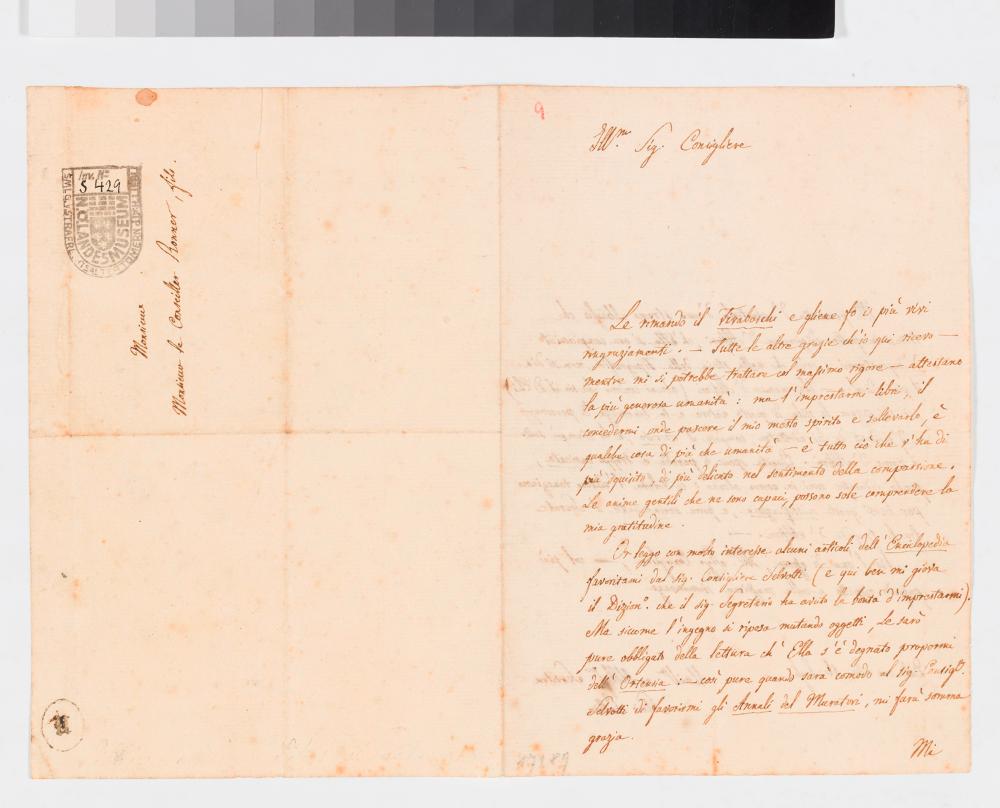 Inv. Nº
S 429
N.Ö. LANDESMUSEUM
Monsieur
Monsieur le Conseiller Ronner, fils.
9
Ill.mo Sig. Consigliere
Le rimando il Tiraboschi e gliene fo i più vivi
ringraziamenti. — Tutte le altre grazie ch'io qui ricevo —
mentre mi si potrebbe trattare col massimo rigore — attestano
la più generosa umanità: ma l'imprestarmi libri, il
concedermi onde pascere il mio mesto spirito e sollevarlo, è
qualche cosa di più che umanità — è tutto ciò che v'ha di
più squisito, di più delicato nel sentimento della compassione.
Le anime gentili che ne sono capaci, possono sole comprendere la
mia gratitudine.
Or leggo con molto interesse alcuni articoli dell'Enciclopedia
favoritami dal sig. Consigliere (e qui ben mi giova
il Dizion.o che il sig. Segretario ha avuto la bontà d'imprestarmi).
Ma siccome l'ingegno si riposa mutando oggetti, Le sarò
pure obbligato della lettura ch'Ella s'è degnato propormi
dell'Ortensia: — così pure quando sarà comodo al sig. Consigl.e
di favorirmi gli Annali del Muratori, mi farà somma
grazia.
Mi